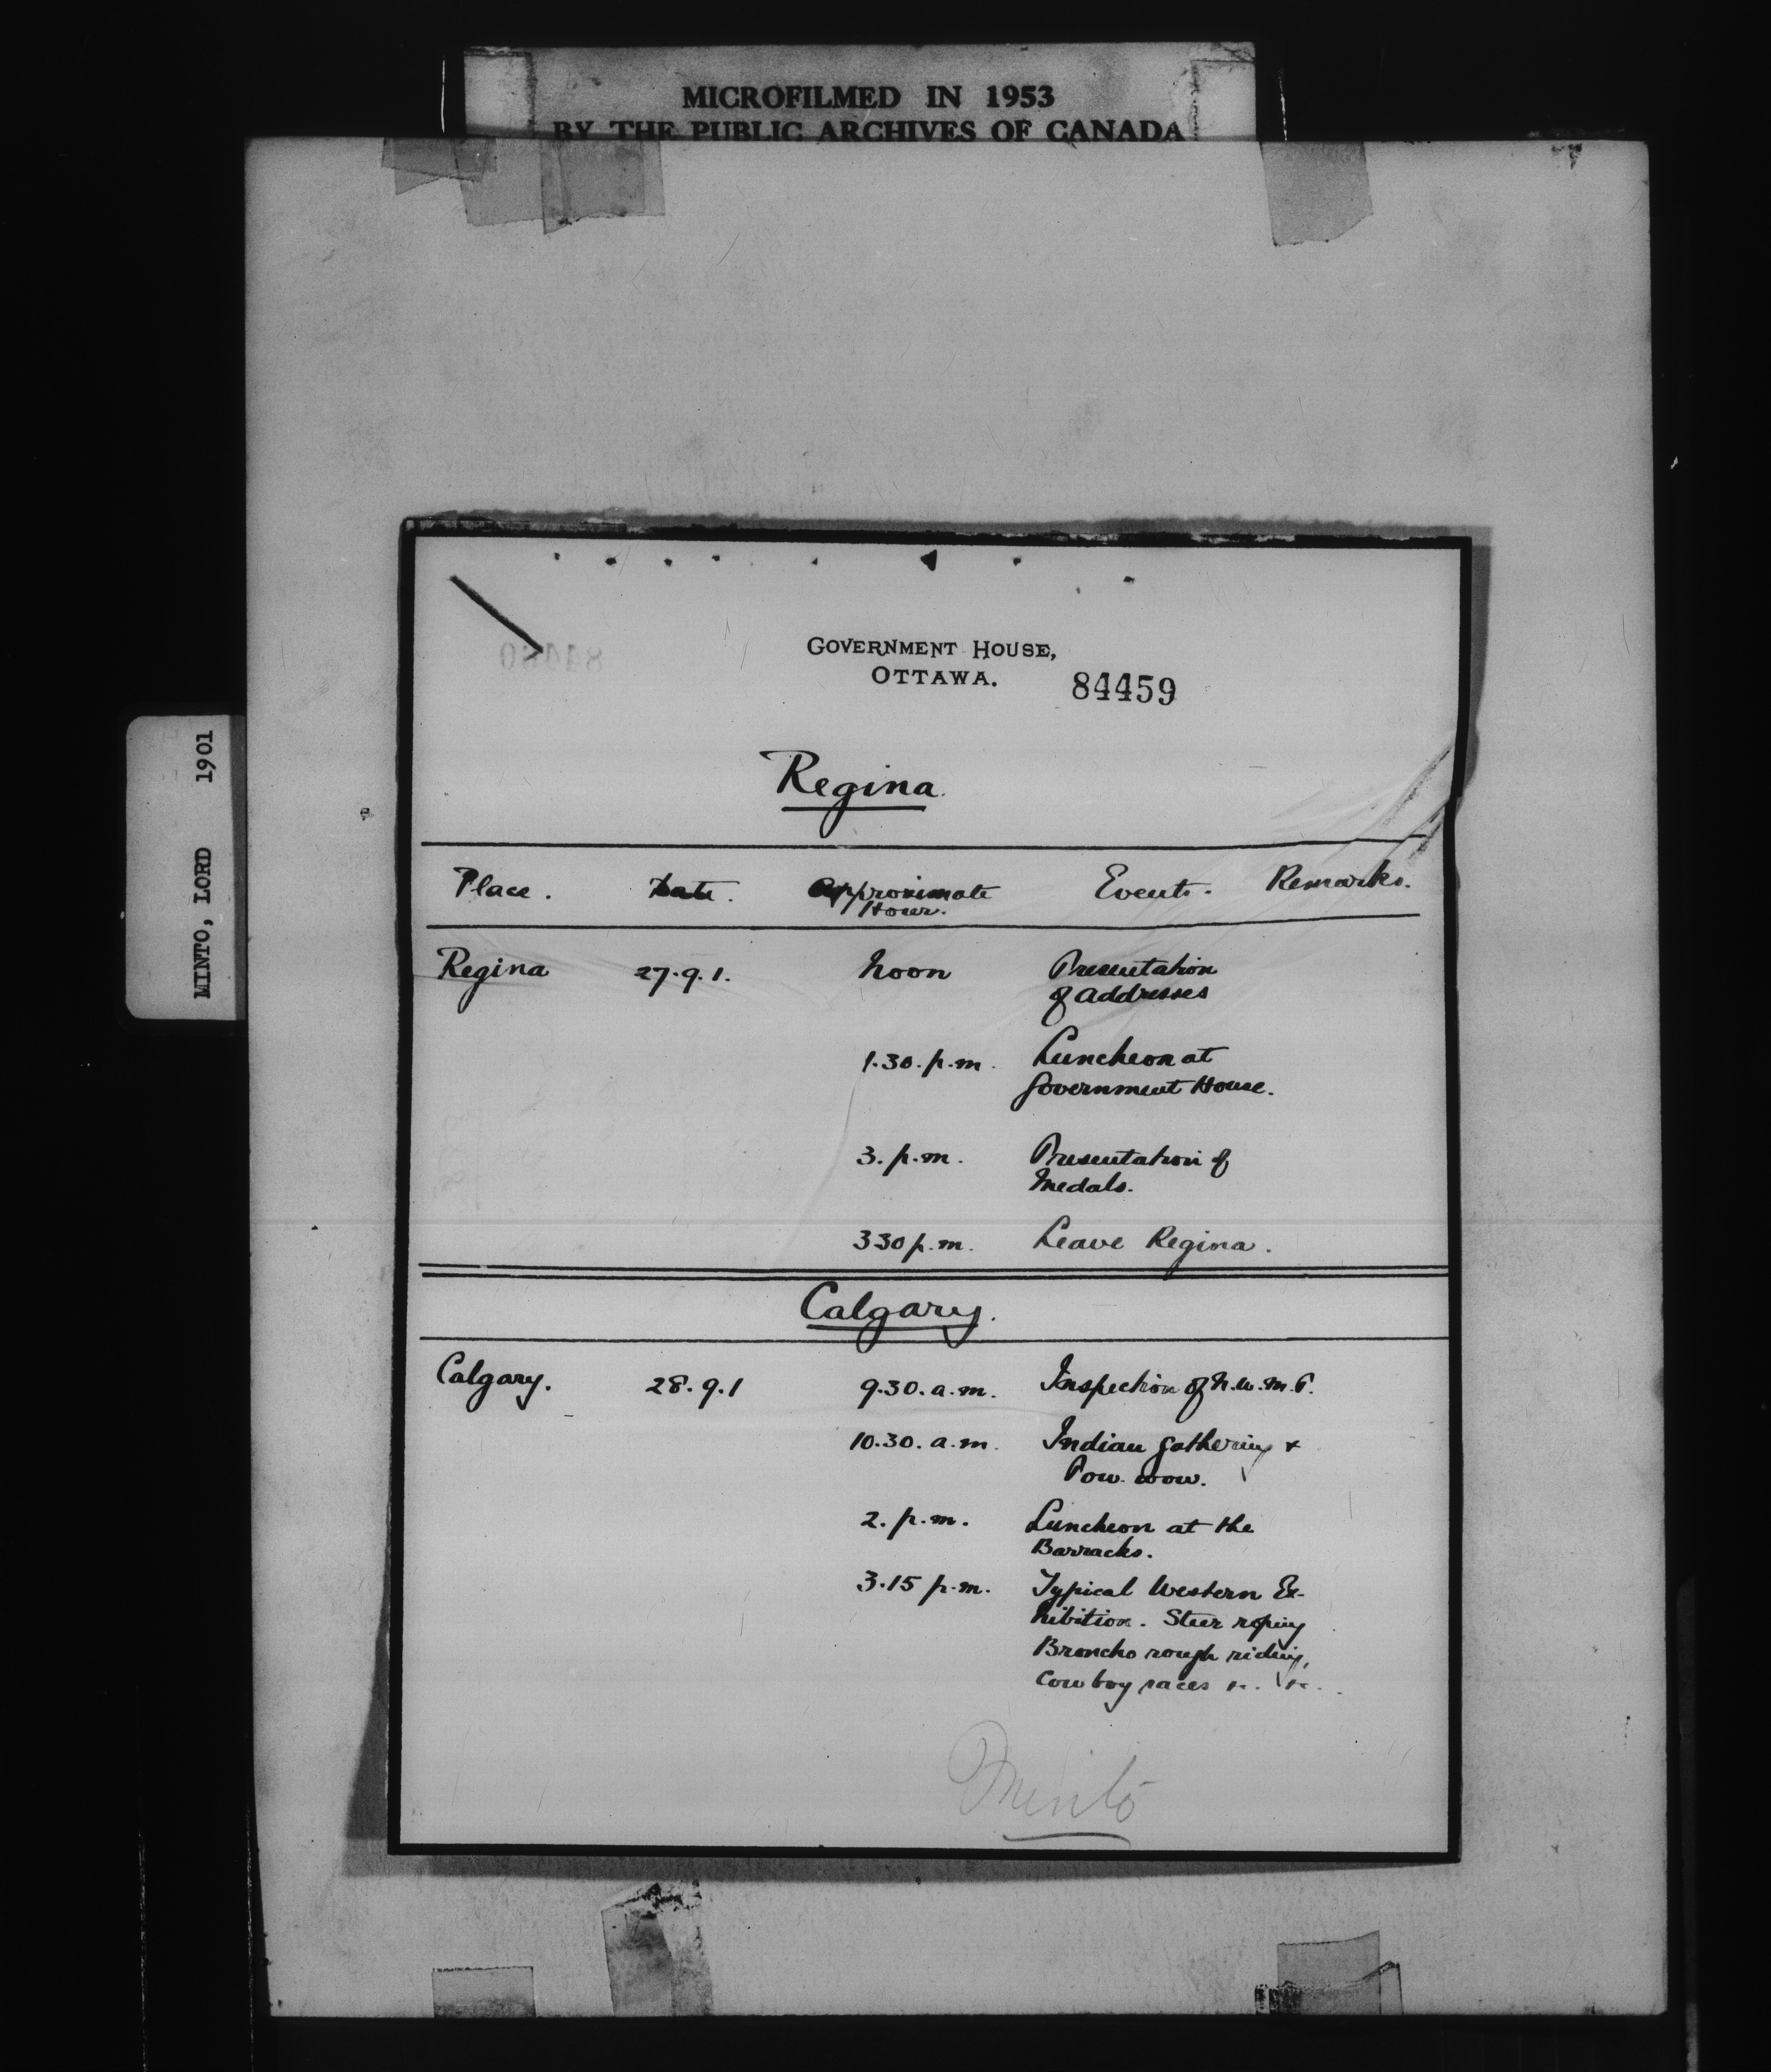 MICROFILMED IN 1953
BY THE PUBLIC ARCHIVES OF CANADA
MINTO, LORD 1901
GOVERNMENT HOUSE,
OTTAWA.
84459
Regina.
Place. Date. Approximate Hour. Events. Remarks.
Regina 27.9.1. Noon Presentation
of addresses
1.30.p.m. Luncheon at
Government House.
3.p.m. Presentation of
Medals.
330 p.m. Leave Regina.
Calgary.
Calgary. 28.9.1 9.30.a.m. Inspection of N.W.M.P.
10.30.a.m. Indian gathering &
Pow-wow.
2.p.m. Luncheon at the
Barracks.
3.15 p.m. Typical Western Ex-
hibition. Steer roping
Broncho rough riding,
Cowboy races &c. &c.
Minto